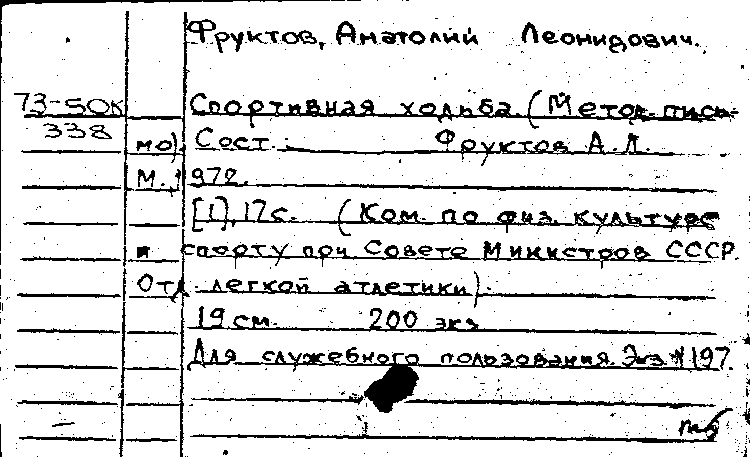 Фруктов, Анатолий Леонидович.
73-50к Спортивная ходьба. (Метод. пись-
338 мо). Сост. Фруктов А.Л.
М., 1972.
[1], 17с. (Ком. по физ. культуре
и спорту при Совете Министров СССР.
Отд. легкой атлетики).
19 см. 200 экз
Для служебного пользования. Экз. №197.